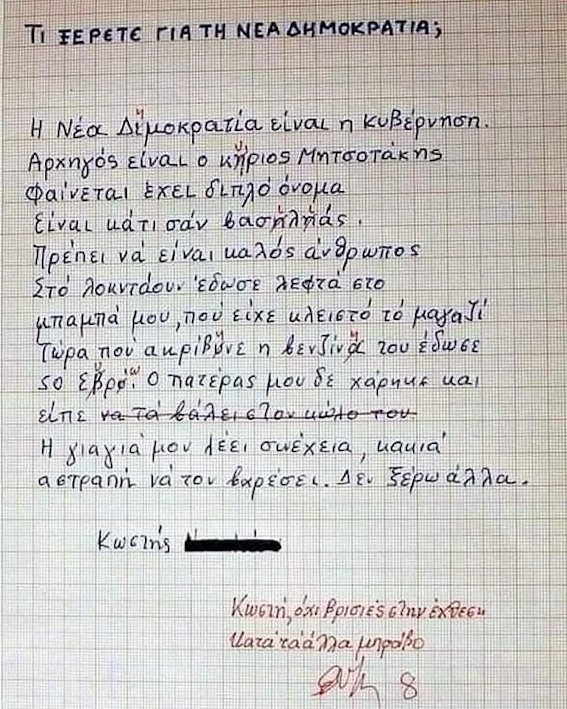 ΤΙ ΞΕΡΕΤΕ ΓΙΑ ΤΗ ΝΕΑ ΔΗΜΟΚΡΑΤΙΑ;
Η Νέα Διμοκρατία είναι η κυβέρνηση.
Αρχηγός είναι ο κήριος Μητσοτάκης
Φαίνεται έχει διπλό όνομα
Είναι κάτι σάν βασηληάς.
Πρέπει νά είναι καλός άνθρωπος
Στό λοκντάουν έδωσε λεφτά στο
μπαμπά μου, πού είχε κλειστό τό μαγαζί
Τώρα πού ακρίβυνε η βενζίνα του έδωσε
50 έβρό. Ο πατέρας μου δε χάρηκε και
είπε να τά βάλει στον κώλο του
Η γιαγιά μου λέει συνέχεια, κακιά
αστραπή νά τον βαρέσει. Δεν ξέρω άλλα.
Κωστής
Κωστή, όχι βρισιές στην έκθεση
Κατά τα άλλα μπράβο
8